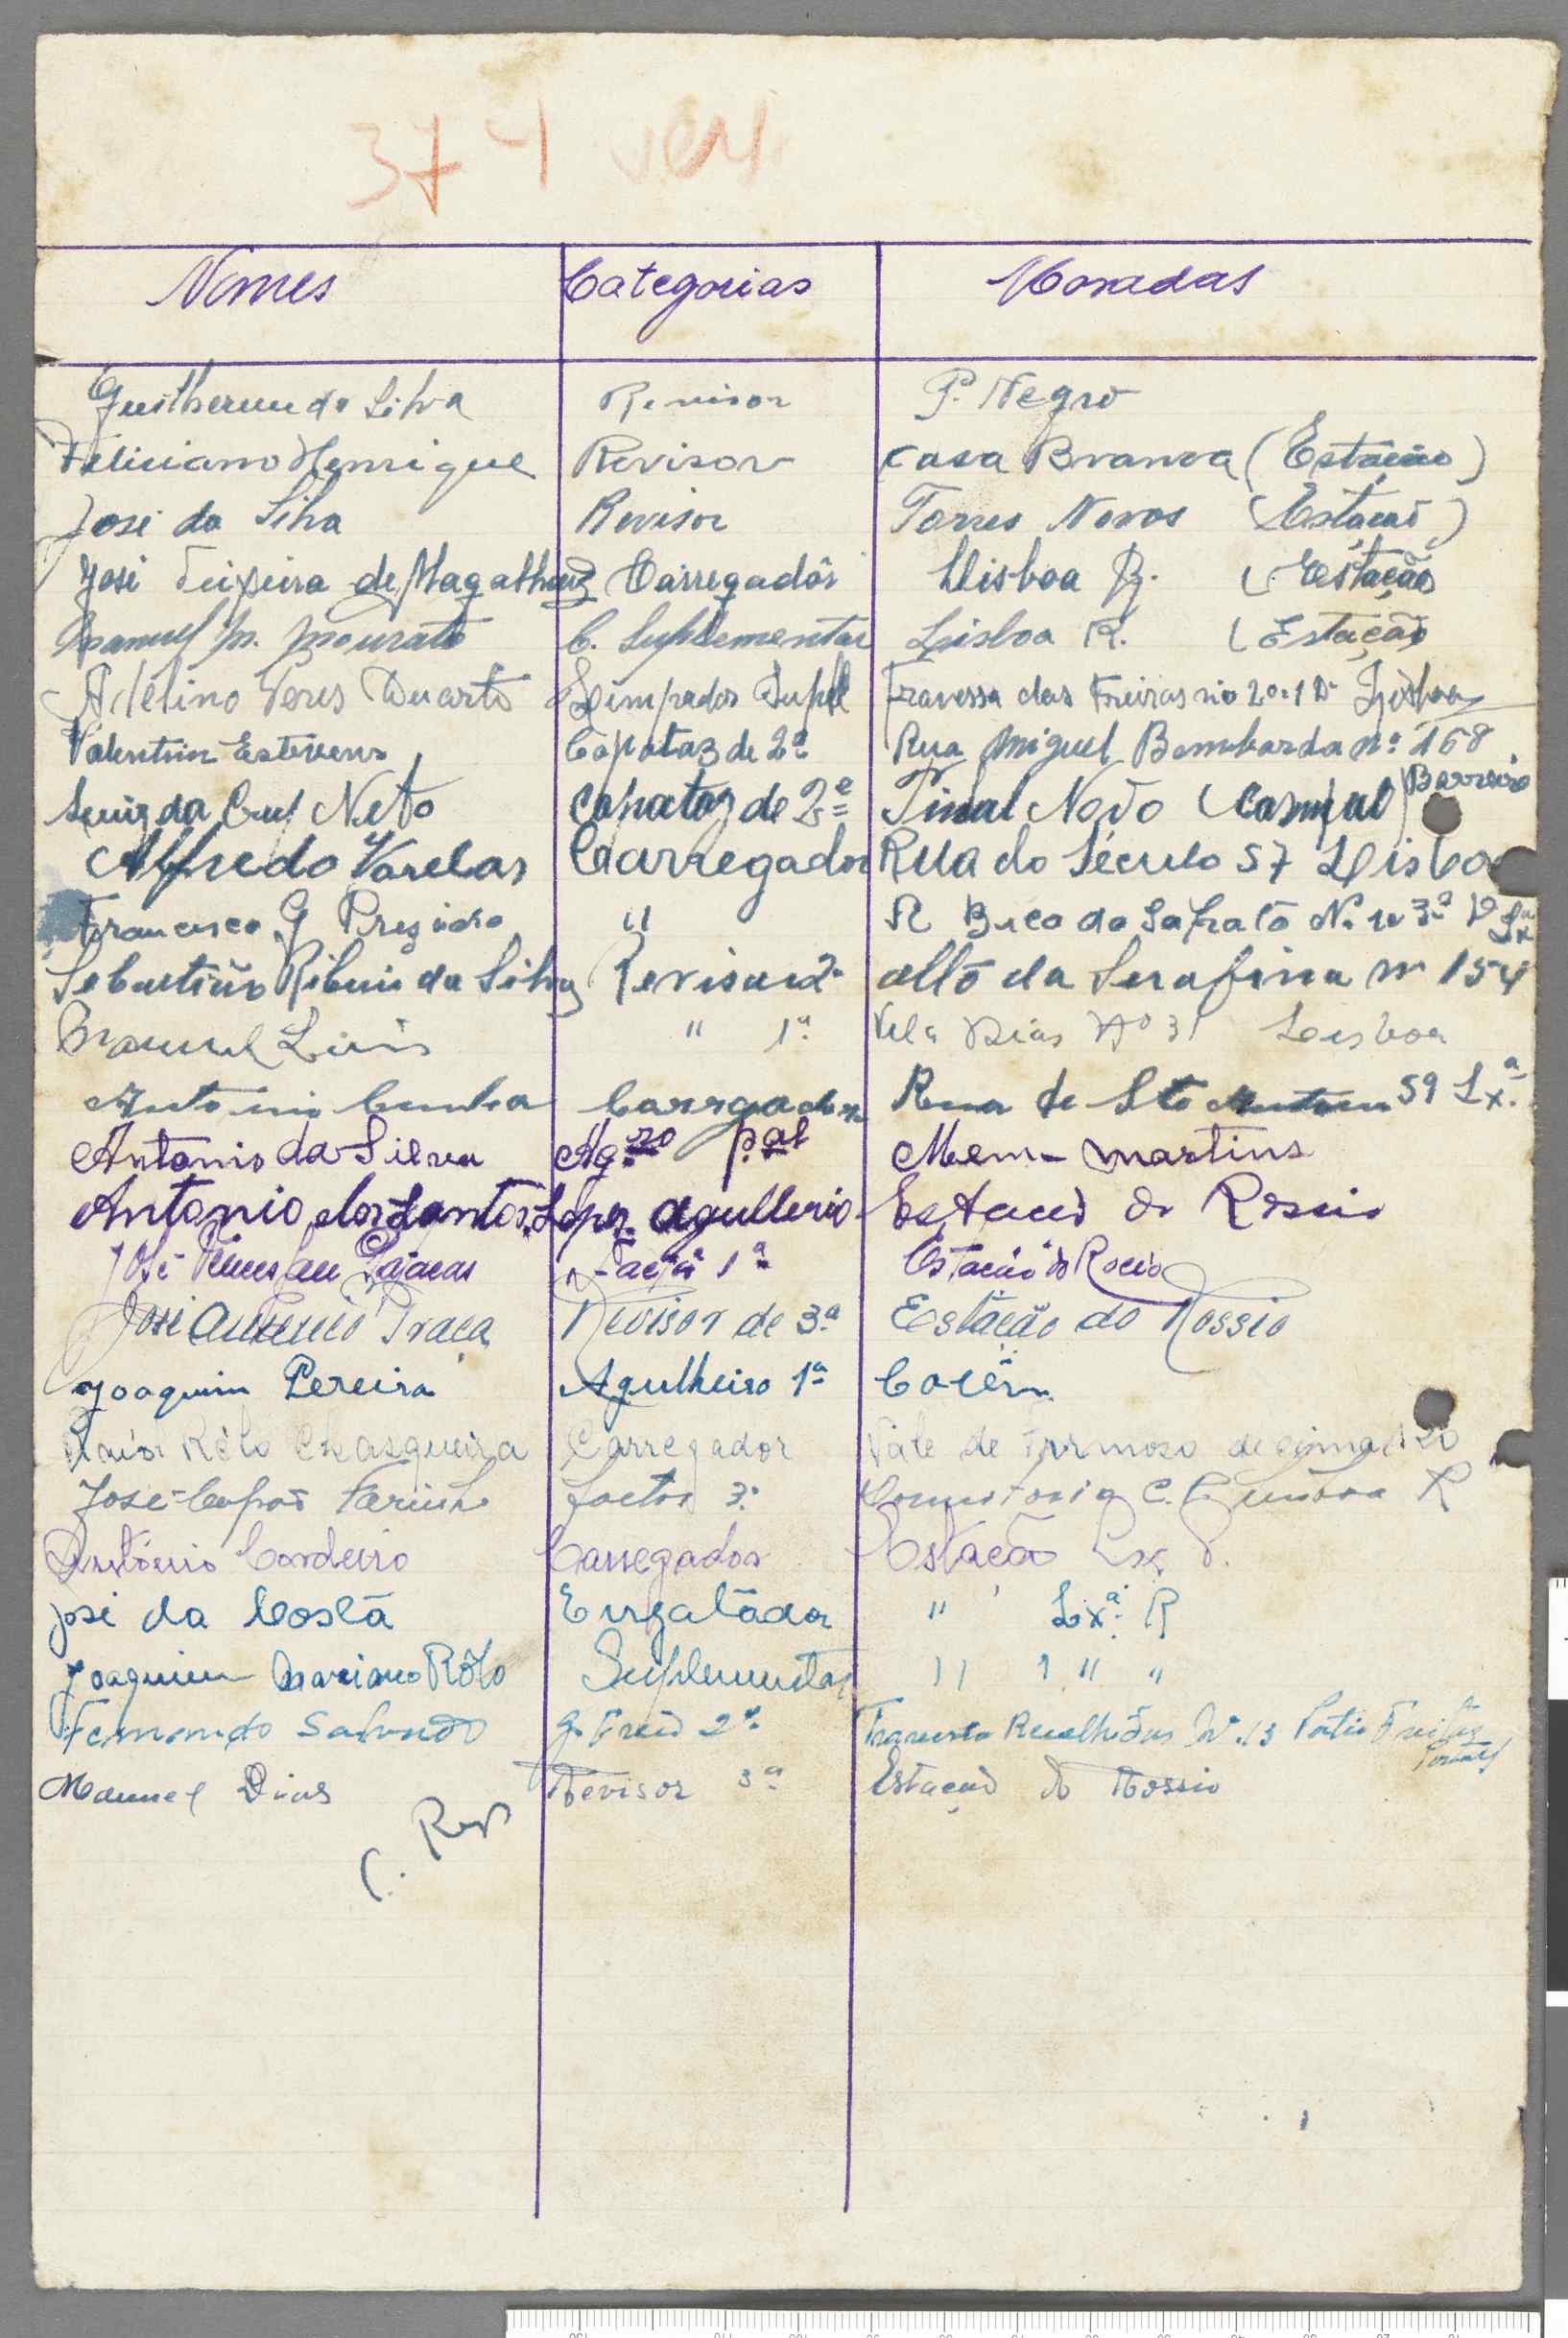 374 ver
Nomes Categorias Moradas
Guilherme da Silva Revisor P. Negro
Feliciano Henrique Revisor Casa Branca (Estação)
José da Silva Revisor Torres Novas (Estação)
José Teixeira de Magalhães Carregadôr Lisboa R. (Estação
Manuel M. Mourato C. Suplementar Lisboa R. (Estação
Adelino Peres Duarte Limpador Supl Travessa das Freiras nº 20-1 D Lisboa
Valentim Estevens Capataz de 2ª Rua Miguel Bombarda nº 168 Barreiro
Luiz da Cruz Neto Capataz de 2ª Pinal Novo
Alfredo Varelas Carregador Rua do Século 57 Lisboa
Francisco G " R Beco do Sapato Nº 3º D Lx
Sebastião Ribeiro da Silva Revisor 2ª alto da Serafina nº 154
Manuel Luis " 1ª Dias Nº 31 Lisboa
Antonio Cunha Carregador Rua de Sto 59 Lxª
Antonio da Silva Agro pal Mem-martins
Antonio dos Santos Lopes agulheiro Estacão do Rossio
José 1ª Estacão do Rocio
José António Praça Revisor de 3ª Estação do Rossio
Joaquim Pereira Agulheiro 1ª
Rôlo Chasqueira Carregador Vale de Formoso de cima 20
José Farinha factor 3ª C. P. Lisboa R
António Cordeiro Carregador Estacão Lx P.
José da Costa Engatador " Lxª R
Joaquim Mariano Rôlo Suplementar " " "
Fernando Salvado g. Freio 2ª Travessa Recolhidas Nº 13 Patio Freitas
Manuel Dias Revisor 3ª Estação do Rossio